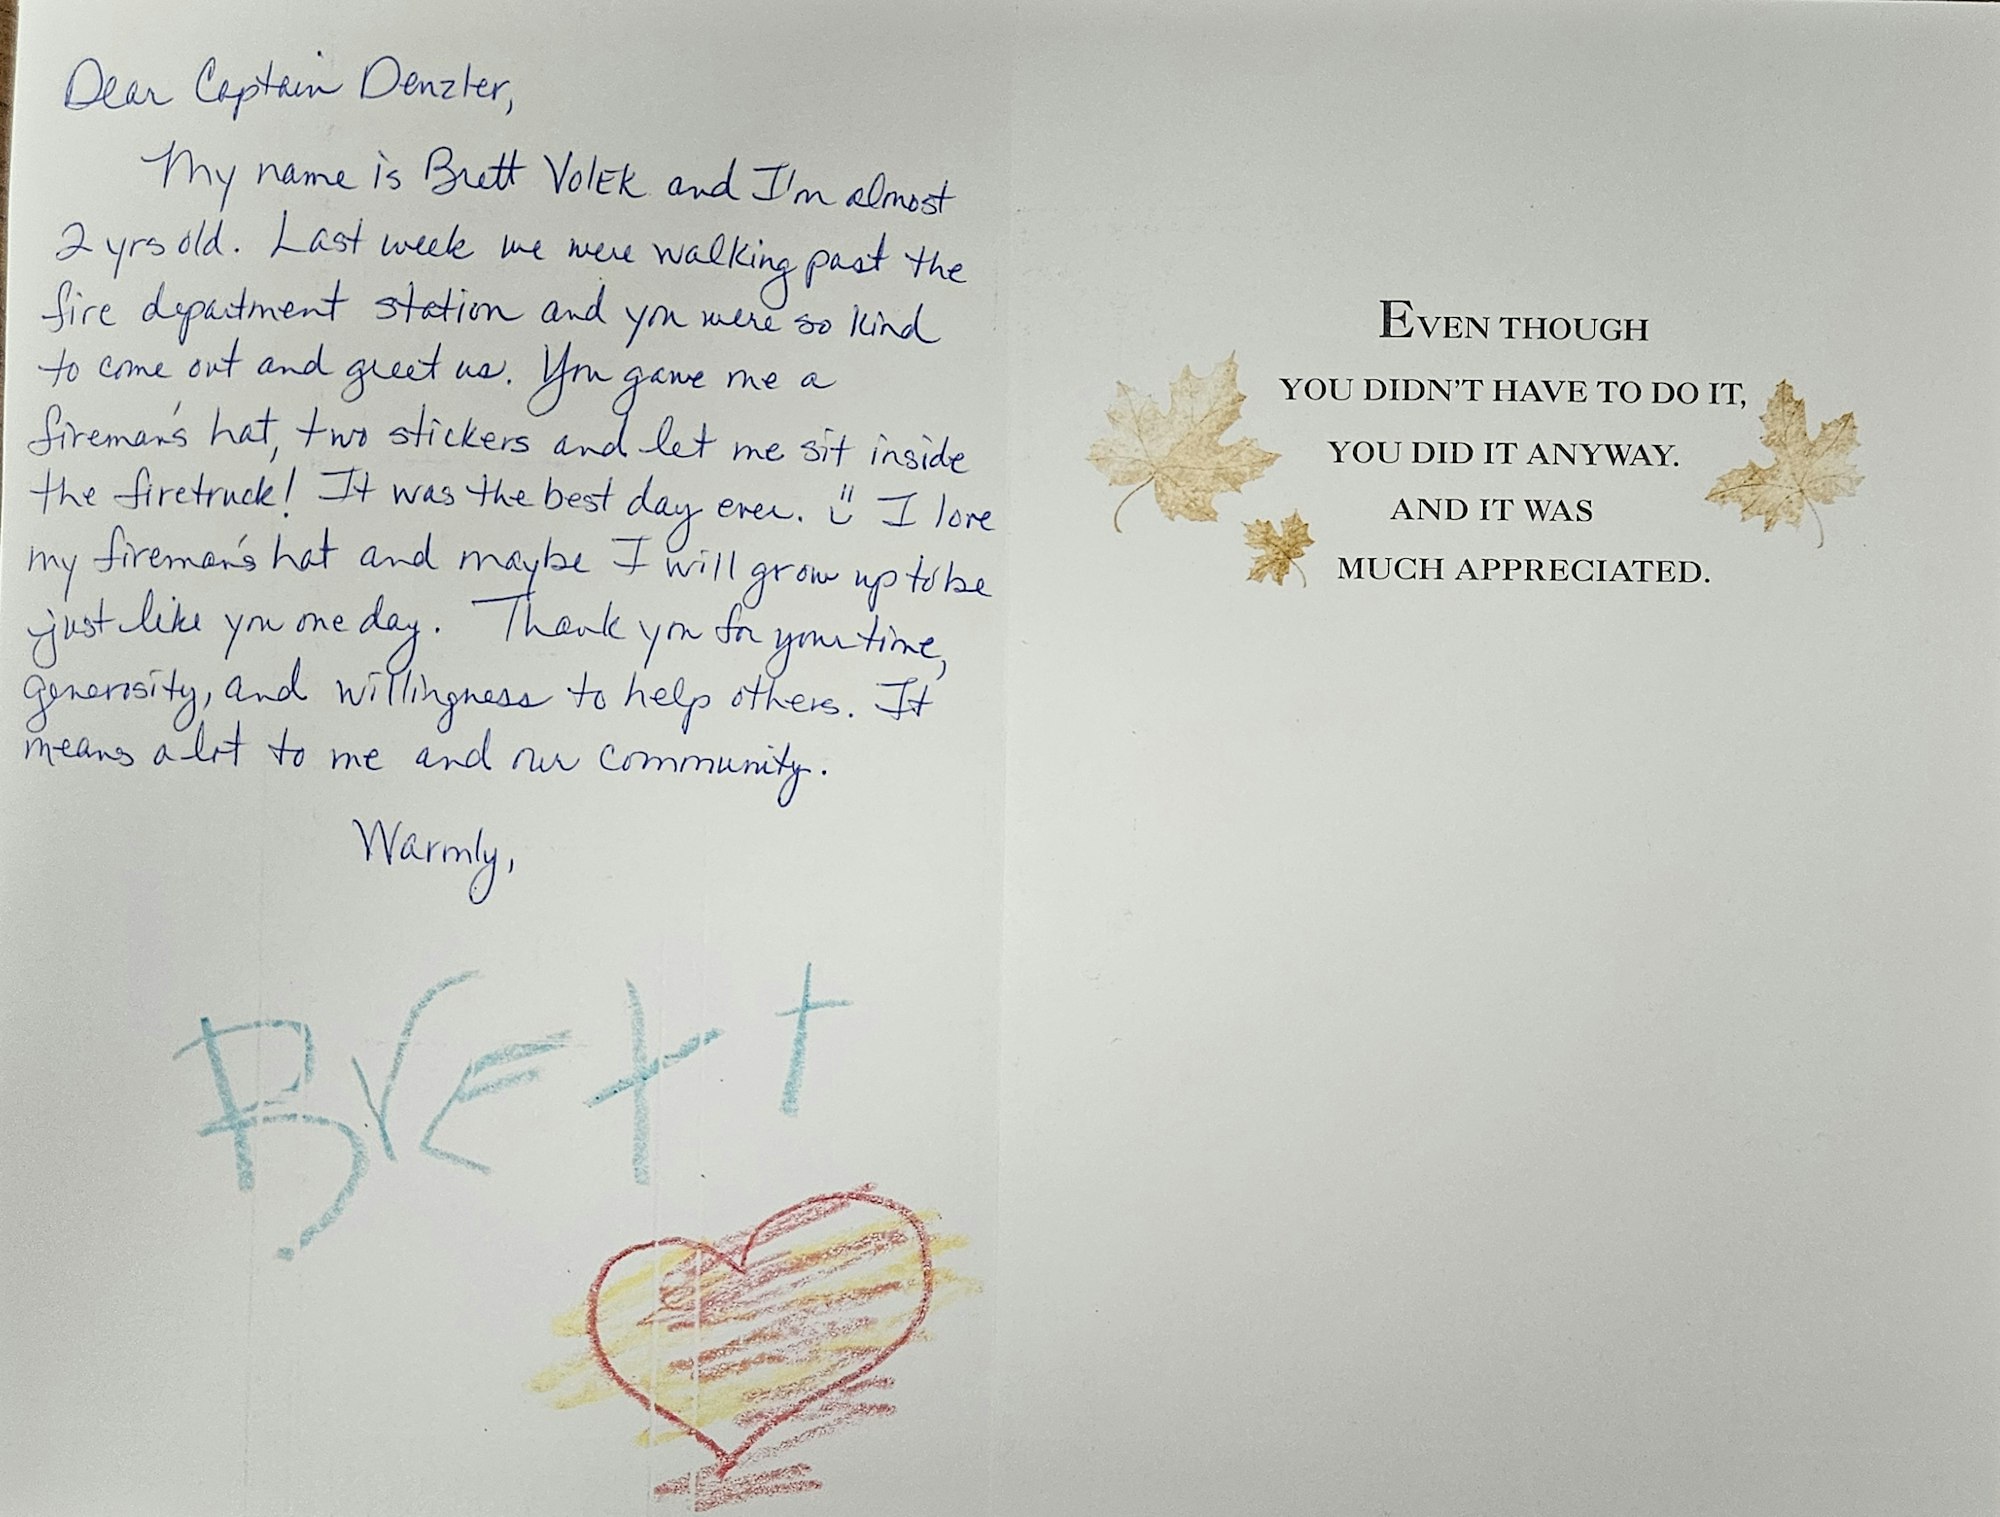 Dear Captain Denzler,
My name is Brett Volek and I'm almost
2 yrs old. Last week we were walking past the
fire department station and you were so kind
to come out and greet us. You gave me a
fireman's hat, two stickers and let me sit inside
the firetruck! It was the best day ever. I love
my fireman's hat and maybe I will grow up to be
just like you one day. Thank you for your time,
generosity, and willingness to help others. It
means a lot to me and our community.
Warmly,
Brett
EVEN THOUGH
YOU DIDN'T HAVE TO DO IT,
YOU DID IT ANYWAY.
AND IT WAS
MUCH APPRECIATED.